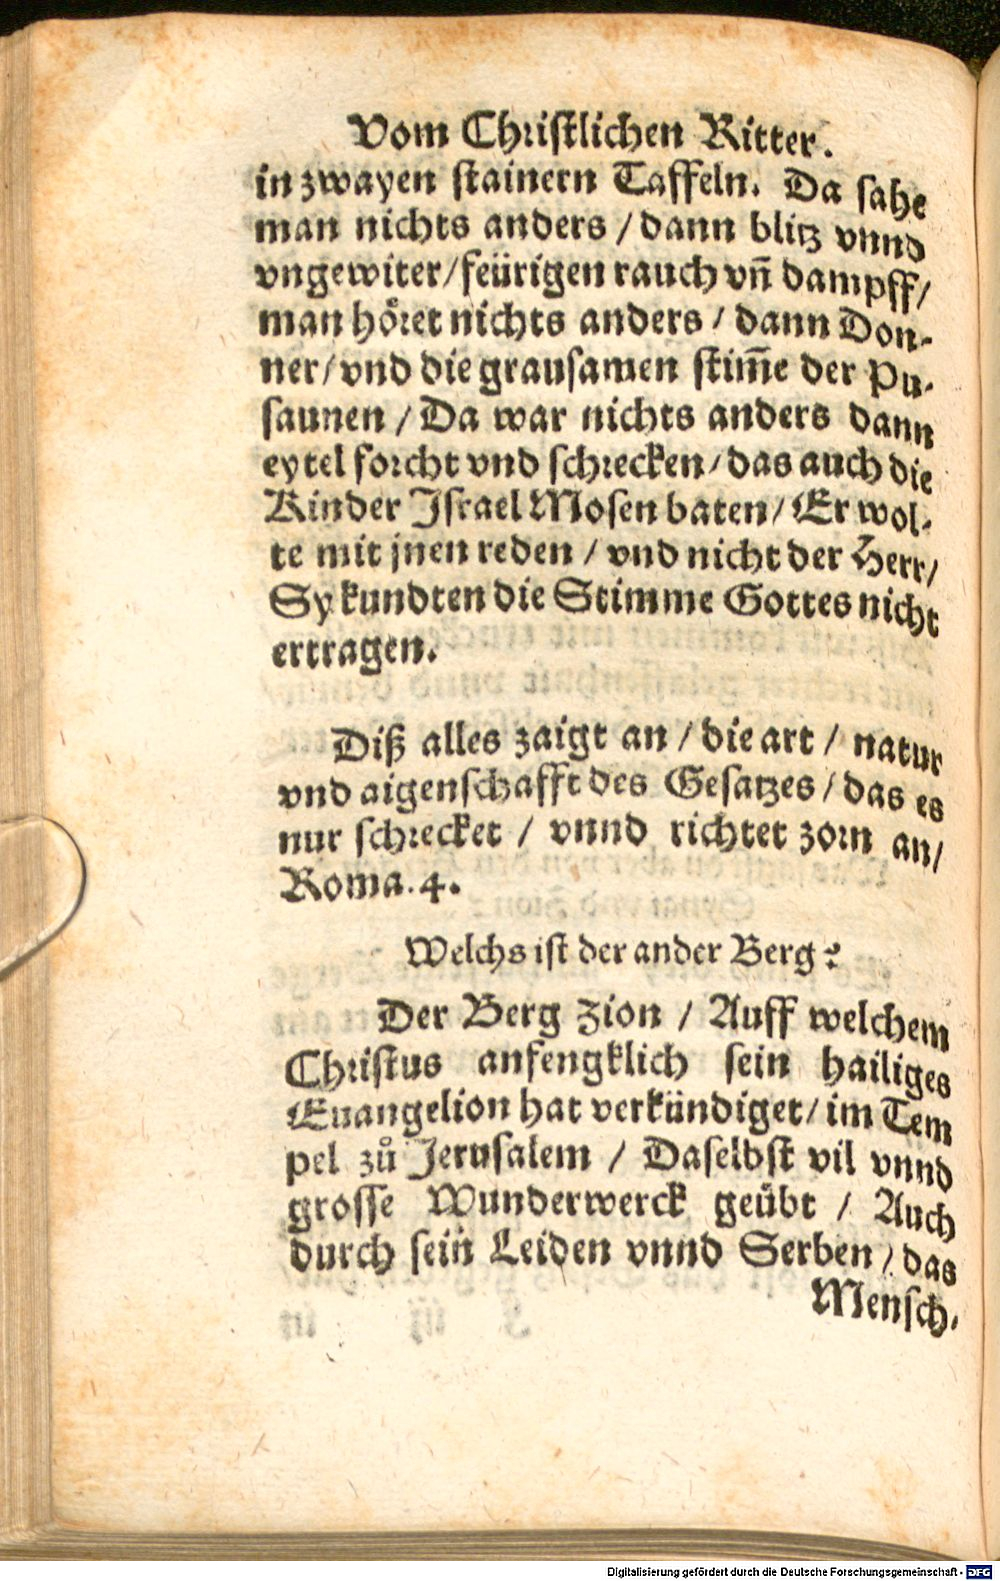 Vom Christlichen Ritter.
in zwayen stainern Taffeln. Da sahe
man nichts anders / dann blitz vnnd
vngewiter / feürigen rauch vn̄ dampff /
man höret nichts anders / dann Don-
ner / vnd die grausamen stim̄e der Pu-
saunen / Da war nichts anders dann
eytel forcht vnd schrecken / das auch die
Kinder Israel Mosen baten / Er wol-
te mit jnen reden / vnd nicht der Herr /
Sy kundten die Stimme Gottes nicht
ertragen.
Diß alles zaigt an / die art / natur
vnd aigenschafft des Gesatzes / das es
nur schrecket / vnnd richtet zorn an /
Roma. 4.
Welchs ist der ander Berg?
Der Berg Zion / Auff welchem
Christus anfengklich sein hailiges
Euangelion hat verkündiget / im Tem
pel zů Jerusalem / Daselbst vil vnnd
grosse Wunderwerck geübt / Auch
durch sein Leiden vnnd Serben / das
Mensch-
Digitalisierung gefördert durch die Deutsche Forschungsgemeinschaft - DFG